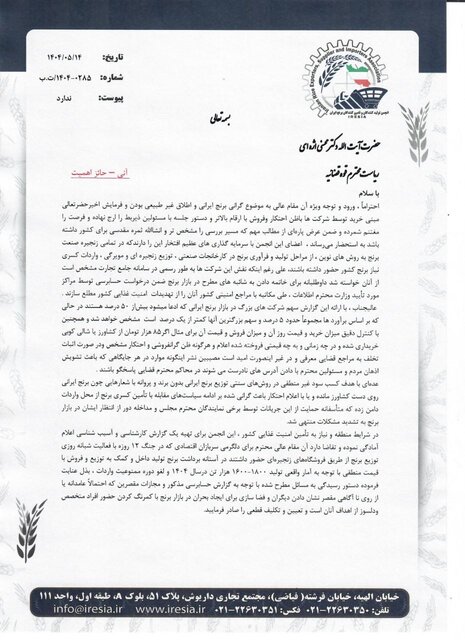 تاریخ: ۱۴۰۴/۰۵/۱۴
شماره: ۱۴۰۴-۰۲۸۵/ت.ب
پیوست: ندارد
Iran Rice Exporters, Supplier and Importers Association
انجمن تولید کنندگان و تامین کنندگان برنج ایران
IRESIA
بسمه تعالی
حضرت آیت الله دکتر محسنی اژه ای
ریاست محترم قوه قضائیه
آنی – حائز اهمیت
با سلام
احتراماً ، ورود و توجه ویژه آن مقام عالی به موضوع گرانی برنج ایرانی و اطلاق غیر طبیعی بودن و فرمایش اخیرحضرتعالی
مبنی خرید توسط شرکت ها باظن احتکار وفروش با ارقام بالاتر و دستور جلسه با مسئولین ذیربط را ارج نهاده و فرصت را
مغتنم شمرده و ضمن عرض پاره‌ای از مطالب مهم که مسیر بررسی را مشخص تر و انشاالله ثمره مقدسی برای کشور داشته
باشد به استحضار می‌رساند ، اعضای این انجمن با سرمایه گذاری های عظیم افتخار این را دارندکه در تمامی زنجیره صنعت
برنج به روش های نوین ، از مراحل تولید و فرآوری برنج در کارخانجات صنعتی ، توزیع زنجیره ای و مویرگی ، واردات کسری
نیاز برنج کشور حضور داشته باشند، علی رغم اینکه نقش این شرکت ها به طور رسمی در سامانه جامع تجارت مشخص است
از آنان خواسته شد داوطلبانه برای خاتمه دادن به شائبه های مطرح در بازار برنج ضمن درخواست حسابرسی توسط مراکز
مورد تأیید وزارت محترم اطلاعات ، طی مکاتبه با مراجع امنیتی کشور آنان را از تهدیدات امنیت غذایی کشور مطلع سازند .
عالیجناب ، با ارائه این گزارش سهم شرکت های بزرگ در بازار برنج ایرانی که ادعا میشود بیش‌از ۵۰ درصد هستند در حالی
که بر اساس برآورد ها مجموعاً حدود ۵ درصد و سهم بزرگترین آنها کمتر از یک درصد است مشخص خواهد شد و همچنین
با کنترل دقیق میزان خرید و قیمت روز آن و میزان فروش و قیمت آن برای مثال اگر۸۵ هزار تومان از کشاورز یا شالی کوبی
خریداری شده و در چه زمانی و به چه قیمتی فروخته شده اعلام و هرگونه ظن گرانفروشی و احتکار مشخص ودر صورت اثبات
تخلف به مراجع قضایی معرفی و در غیر اینصورت امید است مصببین نشر اینگونه موارد در هر جایگاهی که باعث تشویش
اذهان مردم و مسئولین محترم با دادن آدرس های نادرست می شوند در محاکم محترم قضایی پاسخگو باشند .
عده‌ای با هدف کسب سود غیر منطقی در روش‌های سنتی توزیع برنج ایرانی بدون برند و پروانه با شعارهایی چون برنج ایرانی
روی دست کشاورز مانده و یا با اعلام احتکار باعث گرانی شده بر ادامه سیاست‌های مقابله با تأمین کسری برنج از محل واردات
دامن زده که متأسفانه حمایت از این جریانات توسط برخی نمایندگان محترم مجلس و مداخله دور از انتظار ایشان در بازار
برنج به تشدید مشکلات منتهی شد.
در شرایط منطقه و نیاز به تأمین امنیت غذایی کشور ، این انجمن برای تهیه یک گزارش کارشناسی و آسیب شناسی اعلام
آمادگی نموده و تقاضا دارد آن مقام عالی محترم برای دلگرمی سربازان اقتصادی که در جنگ ۱۲ روزه با فعالیت شبانه روزی
توزیع برنج از طریق فروشگاههای زنجیره‌ای حضور داشتند در آستانه برداشت برنج تولید داخل و کمک به توزیع و فروش با
قیمت منطقی با توجه به آمار واقعی تولید ۱۸۰۰-۱۶۰۰ هزار تن درسال ۱۴۰۴ و لغو دوره ممنوعیت واردات ، بذل عنایت
فرموده دستور رسیدگی به مسائل مطرح شده با توجه به گزارش حسابرسی مذکور و مجازات مقصرین که احتمالاً عامدانه یا
از روی نا آگاهی مقصر نشان دادن دیگران و فضا سازی برای ایجاد بحران در بازار برنج با کمرنگ کردن حضور افراد متخصص
ودلسوز از اهداف آنان است و تعیین و تکلیف قطعی را صادر فرمایید.
خیابان الهیه، خیابان فرشته( فیاضی)، مجتمع تجاری داریوش، پلاک ۵۱، بلوک A، طبقه اول، واحد ۱۱۱
تلفن: ۲۲۶۳۰۳۵۰-۰۲۱ فکس: ۲۲۶۳۰۳۵۱-۰۲۱ www.iresia.ir info@iresia.ir